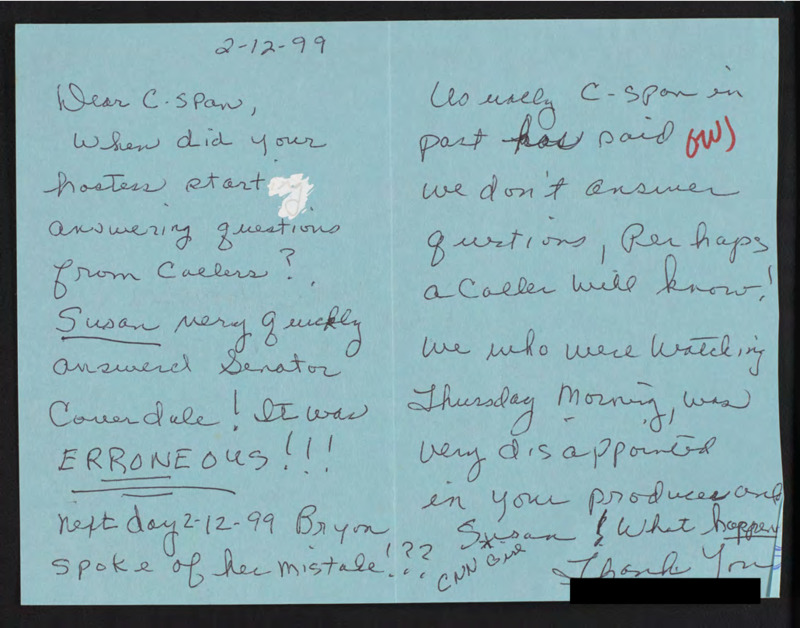 2-12-99
Dear C-span,
When did your
hostess start
answering questions
from Callers?
Susan very quickly
answered Senator
Coverdale! It was
ERRONEOUS!!!
next day 2-12-99 Bryon
spoke of her mistake!??
Usually C-span in
past has said
we don't answer
questions, Perhaps
a Caller will know!
We who were Watching
Thursday Morning, was
very disappointed
in your producer and
Susan! What happen
* CNN Give
Thank You